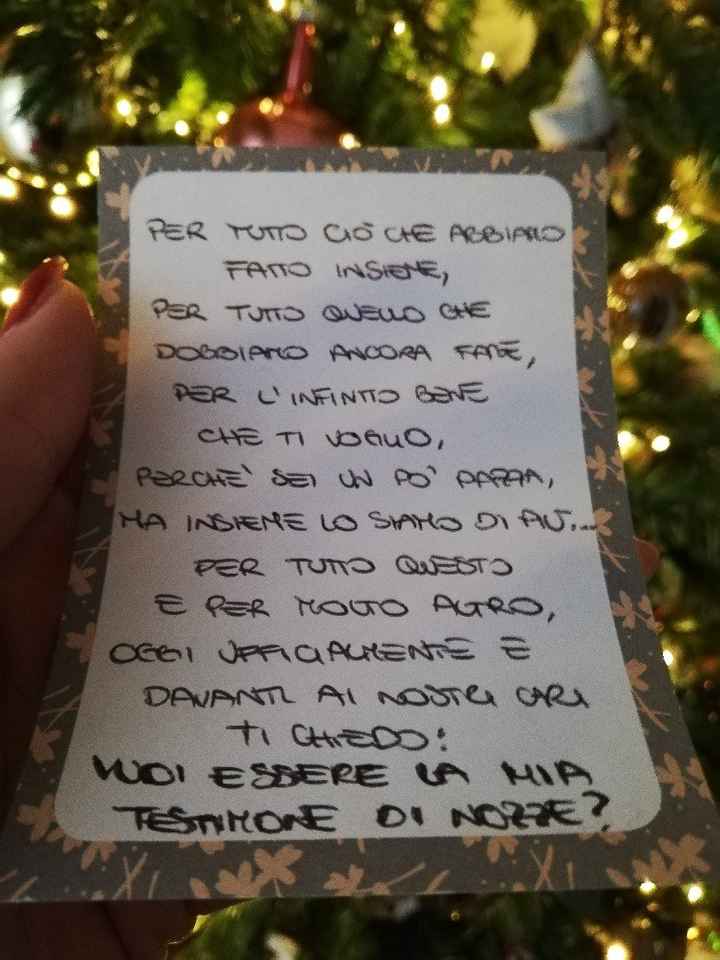 PER TUTTO CIÒ CHE ABBIAMO
FATTO INSIEME,
PER TUTTO QUELLO CHE
DOBBIAMO ANCORA FARE,
PER L'INFINITO BENE
CHE TI VOGLIO,
PERCHE' SEI UN PO' PAZZA,
MA INSIEME LO SIAMO DI PIÙ...
PER TUTTO QUESTO
E PER MOLTO ALTRO,
OGGI UFFICIALMENTE E
DAVANTI AI NOSTRI CARI
TI CHIEDO:
VUOI ESSERE LA MIA
TESTIMONE DI NOZZE?